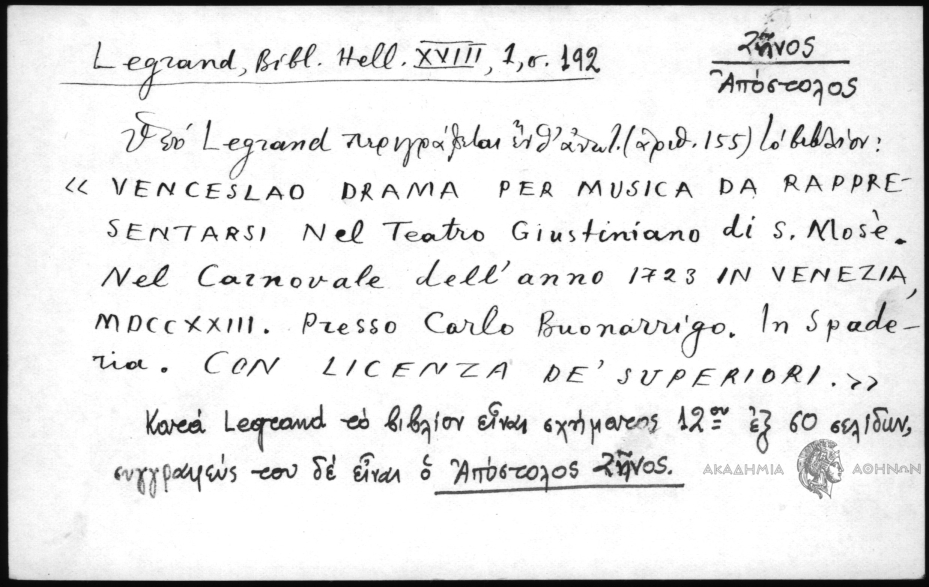 Legrand, Bibl. Hell. XVIII, 1, σ. 192
Ζῆνος
Ἀπόστολος
Ὑπό Legrand περιγράφεται ἐνθ' ἀνωτ. (ἀριθ. 155) τό βιβλίον:
« VENCESLAO DRAMA PER MUSICA DA RAPPRE-
SENTARSI Nel Teatro Giustiniano di S. Mosè.
Nel Carnovale dell' anno 1723 IN VENEZIA,
MDCCXXIII. Presso Carlo Buonarrigo. In Spade-
ria. CON LICENZA DE' SUPERIORI. »
Κατά Legrand τό βιβλίον εἶναι σχήματος 12ου ἐξ 60 σελίδων,
συγγραφεύς του δέ εἶναι ὁ Ἀπόστολος Ζῆνος.
ΑΚΑΔΗΜΙΑ ΑΘΗΝΩΝ